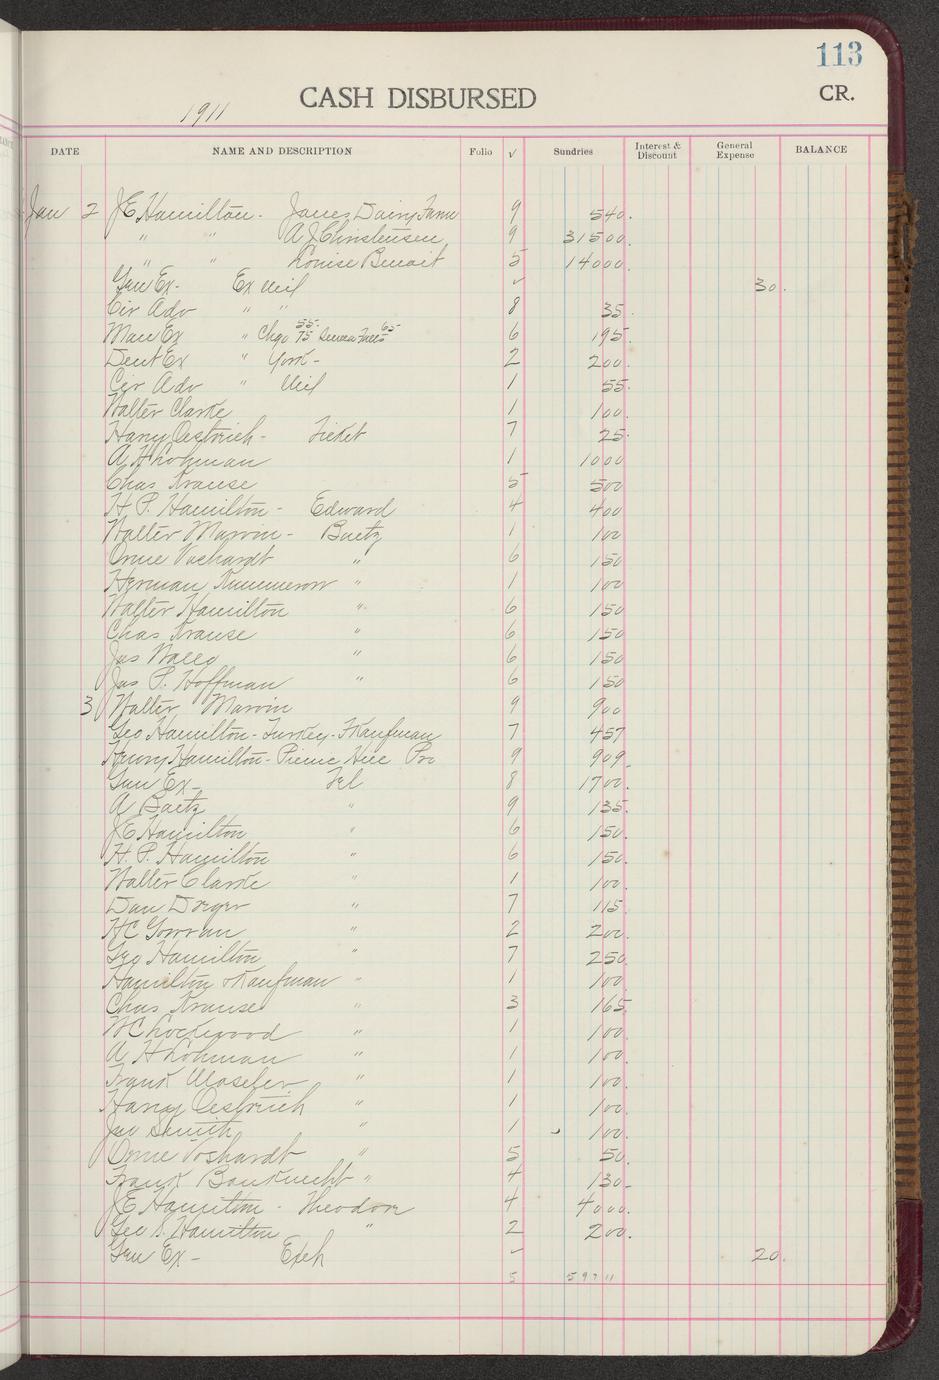 113
CASH DISBURSED
CR.
1911
DATE NAME AND DESCRIPTION Folio √ Sundries Interest & Discount General Expense BALANCE
Jan 2 J E Hamilton - Janes Dairy Farm 9 540.
" " A J Christensen 9 31500.
" " Louise Benoit 5 14000.
Gen Ex - Ex Mil ✓ 30.
Cir Adv " " 8 35.
Man Ex " Chgo 55 75 Seneca Falls 65 6 195.
Dent Ex " York - 2 200.
Cir Adv " Mil 1 55.
Walter Clarke 1 100.
Harry Oestrich - Ticket 7 25.
A H Lohman 1 1000
Chas Krause 5 500
H. P. Hamilton - Edward 4 400
Walter Marvin - Baetz 1 100
Orme Voshardt " 6 150
Herman " 1 100
Walter Hamilton " 6 150
Chas Krause " 6 150
Jas " 6 150
Jas P. Hoffman " 6 150
3 Walter Marvin 9 900
Geo Hamilton - Turkey - Kaufman 7 457
Henry Hamilton - Pierce Hice Pro 9 909.
Gen Ex - Tel 8 1700.
A Baetz " 9 135.
J E Hamilton " 6 150.
H. P. Hamilton " 6 150.
Walter Clarke " 1 100.
Dan " 7 115.
H C Gowran " 2 200.
Geo Hamilton " 7 250.
Hamilton & Kaufman " 1 100.
Chas Krause " 3 165.
W C Lockwood " 1 100.
A H Lohman " 1 100.
Frank Moseler " 1 100.
Harry Oestrich " 1 100.
Jno Smith " 1 100.
Orme Voshardt " 5 50.
Frank Bauknecht " 4 130 -
J E Hamilton - Theodore 4 4000.
Geo S. Hamilton " 2 200.
Gen Ex - Exch ✓ 20.
5 59711